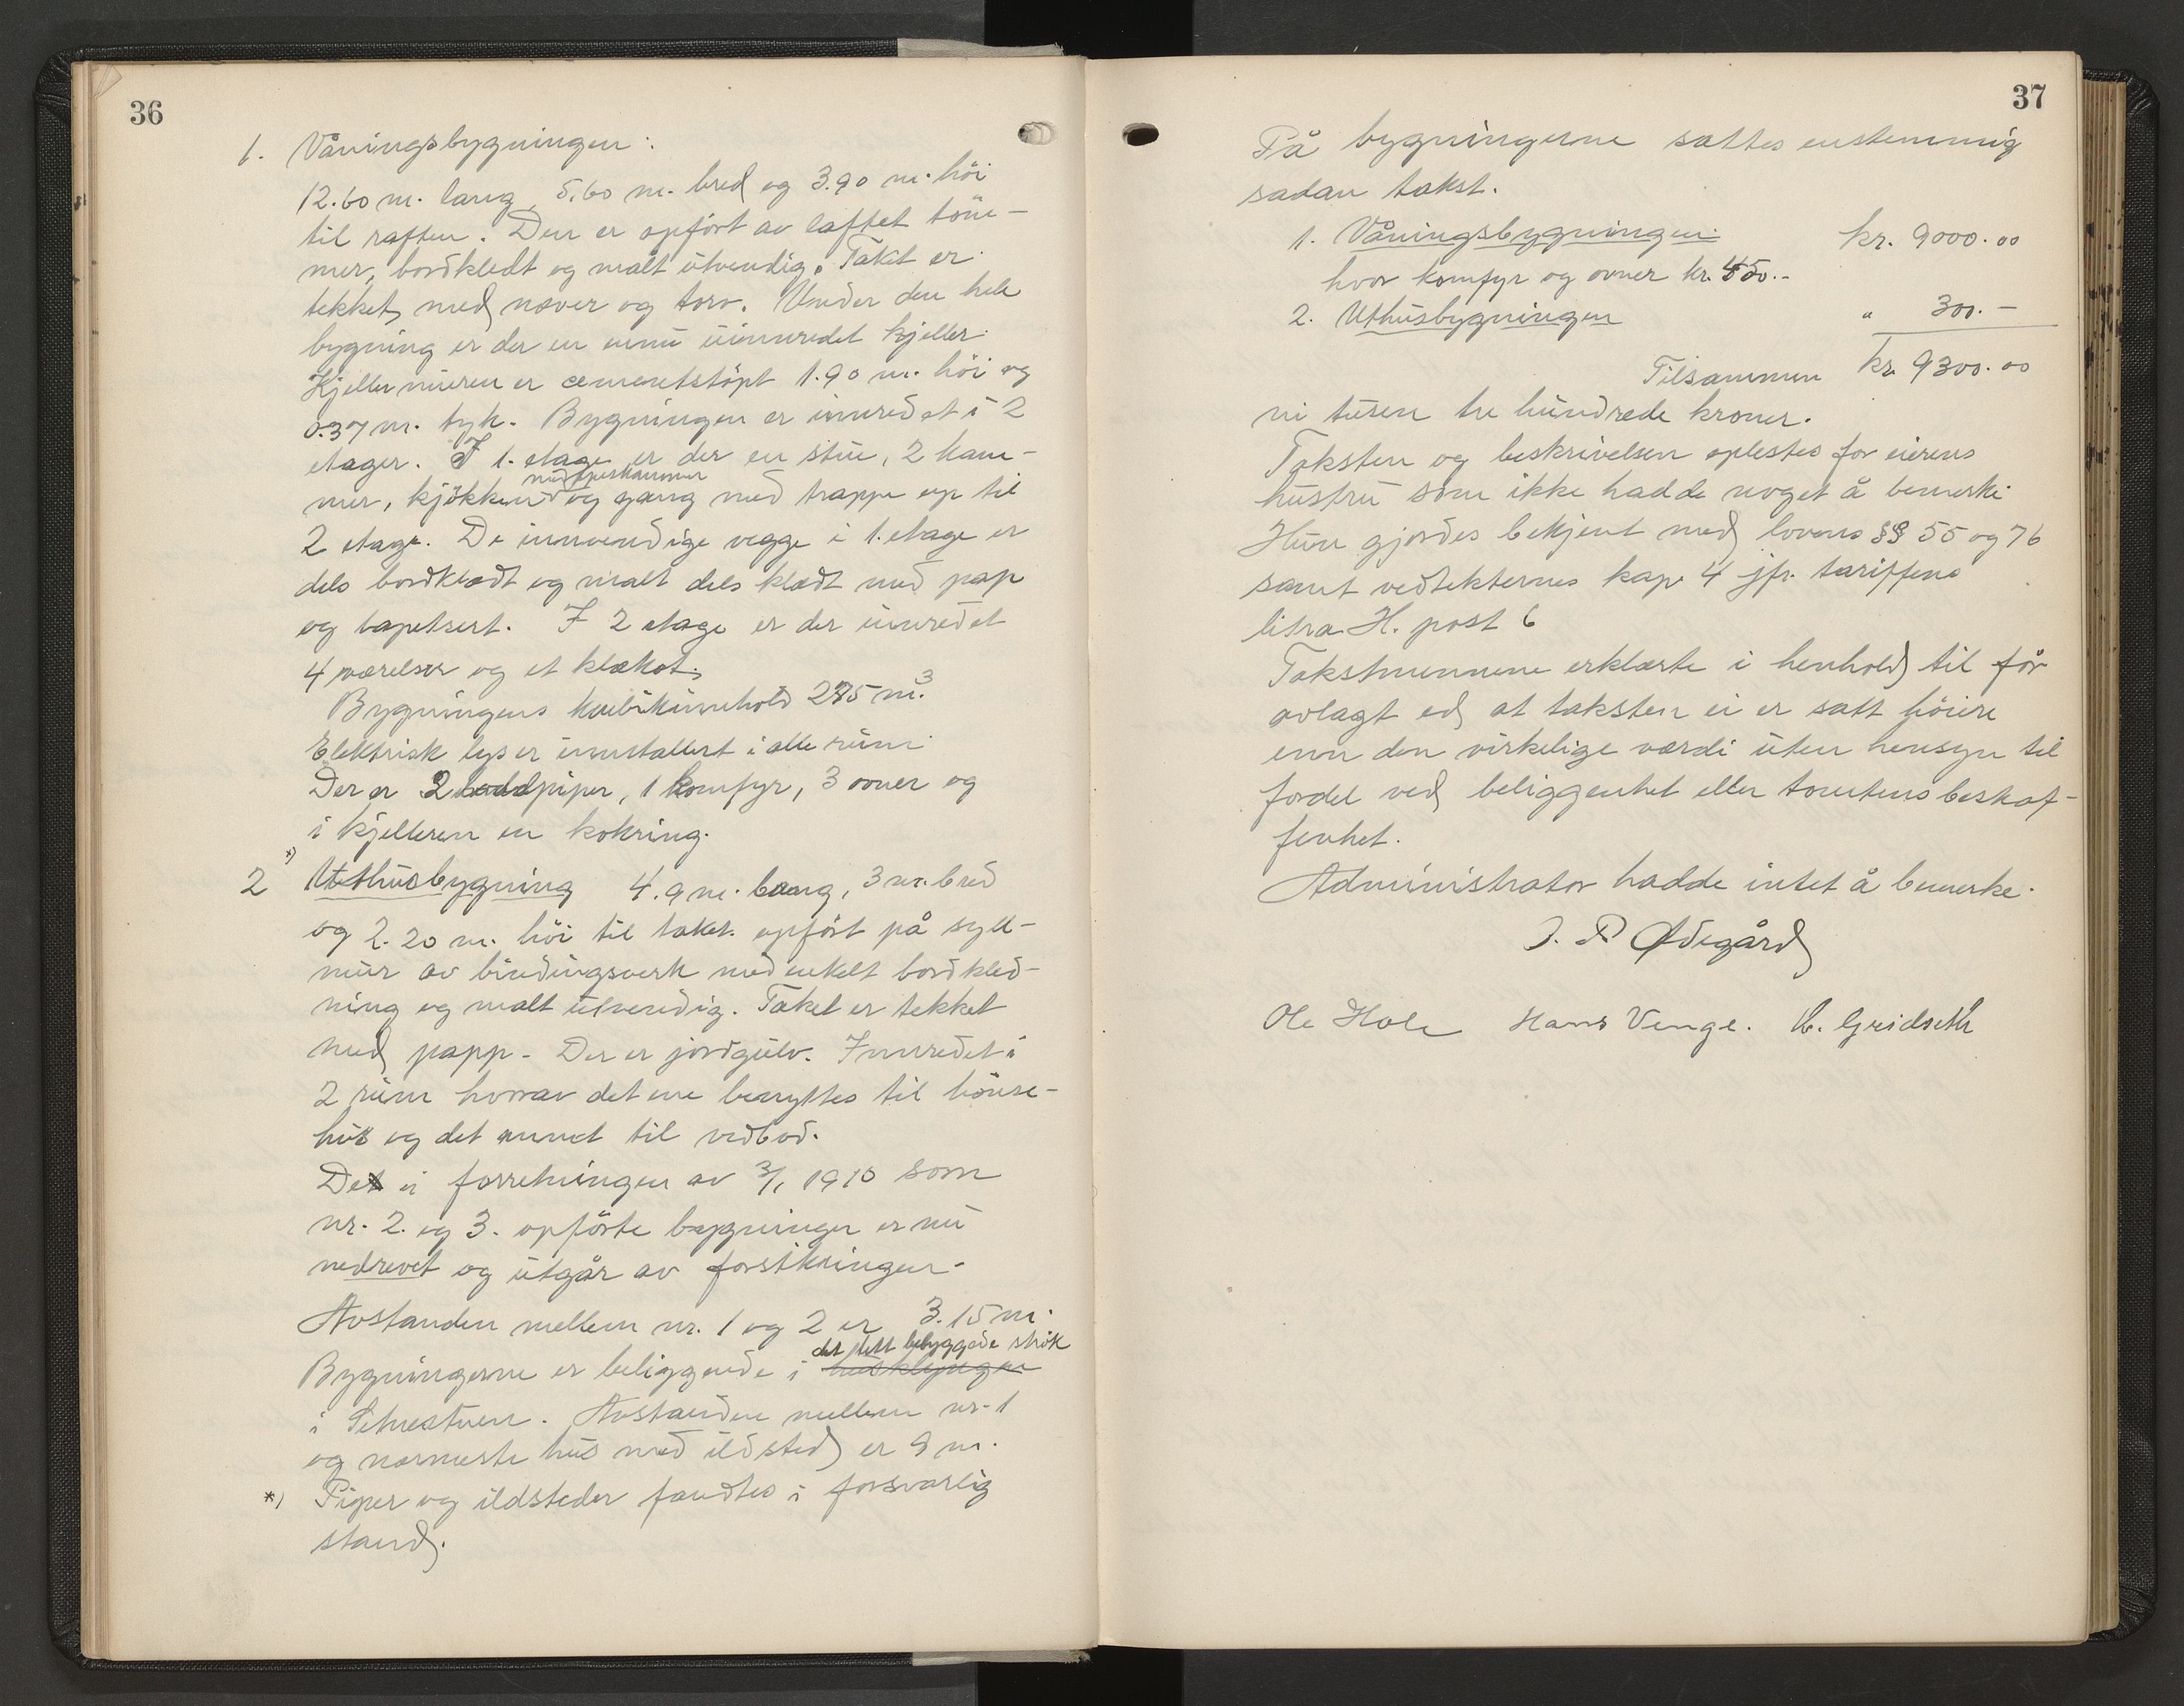 36
1. Våningsbygningen:
12.60 m. lang, 5,60 m. bred og 3.90 m. höi
til raften. Den er opfört av laftet töm-
mer, bordkledt og malt utvendig. Taket er
tekket med næver og torv. Under den hele
bygning er der en ennu uinnredet kjeller.
Kjellermuren er cementstöpt 1.90 m. höi og
0.37 m. tyk. Bygningen er innredet i 2
etager. I 1. etage er der en stue, 2 kam-
med spiskammer
mer, kjökken og gang med trappe op til
2 etage. De innvendige vegge i 1. etage er
dels bordklædt og malt dels klædt med pap
og tapetsert. I 2 etage er der innredet
4 værelser og et klækot.
Bygningens kubikinnehold 275 m.³
Elektrisk lys er innstallert i alle rum.
Der er 2 piper, 1 komfyr, 3 ovner og
i kjelleren en kokring.
*)
2 Uthusbygning 4.9 m. lang, 3 m. bred
og 2.20 m. höi til taket. opfört på syll-
mur av bindingsverk med enkelt bordkled-
ning og malt utvendig. Taket er tekket
med papp. Der er jordgulv. Innredet i
2 rum hvorav det ene benyttes til hönse-
hus og det annet til vedbod.
De i forretningen av 3/1 1910 som
nr. 2. og 3. opförte bygninger er nu
nedrevet og utgår av forsikringen.
Avstanden mellem nr. 1 og 2 er 3.15 m.
det tett bebyggede strök
Bygningerne er beliggende i husklyngen
i Setnestuen. Avstanden mellem nr. 1
og nærmeste hus med ildsted er 9 m.
*) Piper og ildsteder fandtes i forsvarlig
stand.
37
På bygningerne sattes enstemmig
sadan takst.
1. Våningsbygningen kr. 9000.00
hvor komfyr og ovner kr. 450.-
2. Uthusbygningen " 300.-
Tilsammen kr. 9300.00
ni tusen tre hundrede kroner.
Taksten og beskrivelsen oplestes for eierens
hustru som ikke hadde noget å bemerke.
Hun gjordes bekjent med lovens §§ 55 og 76
samt vedtekternes kap. 4 jfr. tariffens
litra H. post 6
Takstmennene erklærte i henhold til för
avlagt ed at taksten ei er satt höiere
enn den virkelige værdi uten hensyn til
fordel ved beliggenhet eller tomtens beskaf-
fenhet.
Administrator hadde intet å bemerke.
O. P. Ødegård
Ole Hole Hans Venge. K. Gridseth